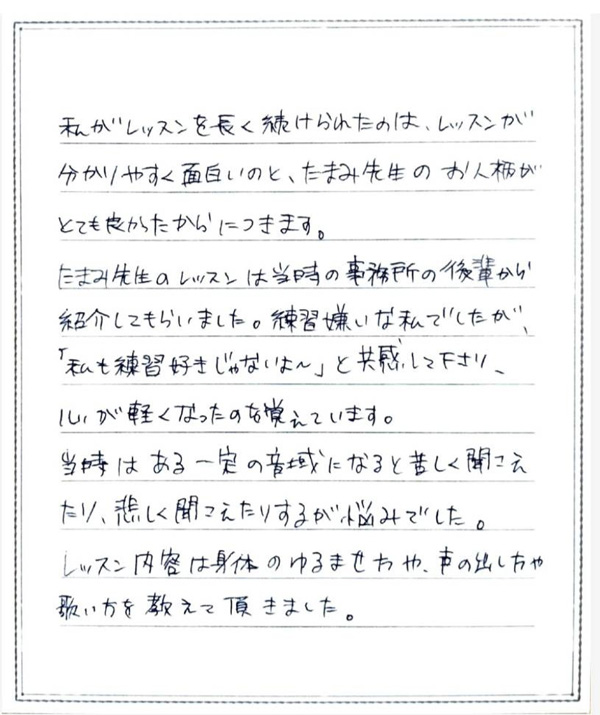 私がレッスンを長く続けられたのは、レッスンが
分かりやすく面白いのと、たまみ先生のお人柄が
とても良かったからにつきます。
たまみ先生のレッスンは当時の事務所の後輩から
紹介してもらいました。練習嫌いな私でしたが、
「私も練習好きじゃないよ〜」と共感して下さり、
心が軽くなったのを覚えています。
当時はある一定の音域になると苦しく聞こえ
たり、悲しく聞こえたりするが悩みでした。
レッスン内容は身体のゆるませ方や、声の出し方や
歌い方を教えて頂きました。